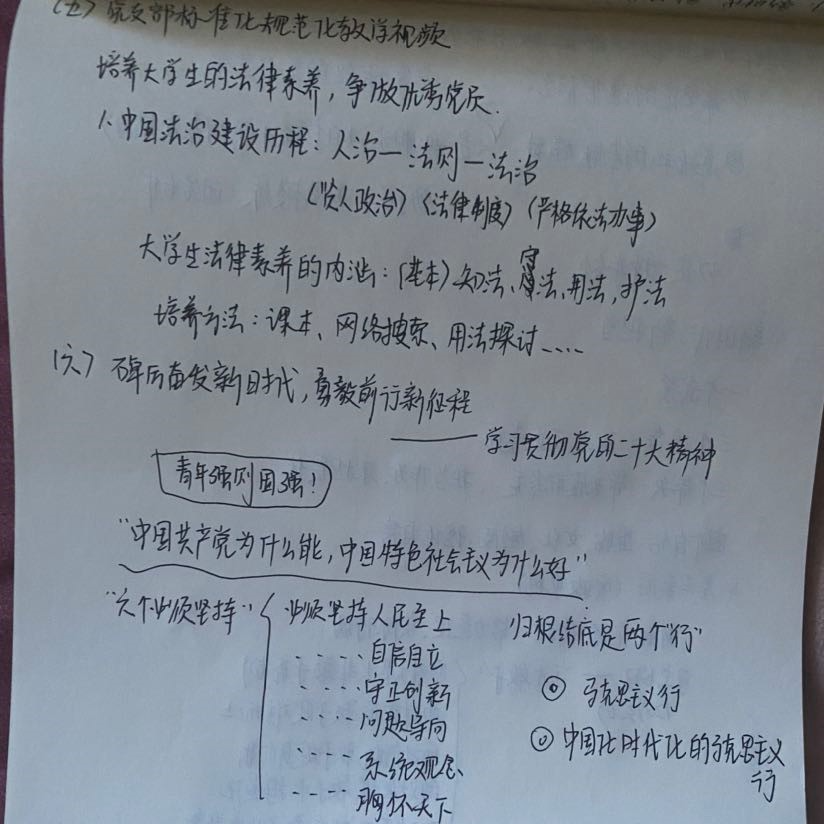 (五) 党支部标准化规范化教学视频
培养大学生的法律素养，争做优秀党员.
1.中国法治建设历程：人治—法则—法治
(贤人政治)(法律制度)(严格依法办事)
大学生法律素养的内涵：(基本)知法、守法、用法、护法
培养方法：课本、网络搜索、用法探讨.....
(六) 踔厉奋发新时代，勇毅前行新征程
——学习贯彻党的二十大精神
青年强则国强！
"中国共产党为什么能，中国特色社会主义为什么好"
"六个必须坚持" 必须坚持人民至上 归根结底是两个"行"
····自信自立
····守正创新 ⊙ 马克思主义行
····问题导向
····系统观念 ⊙ 中国化时代化的马克思主义
行
····胸怀天下